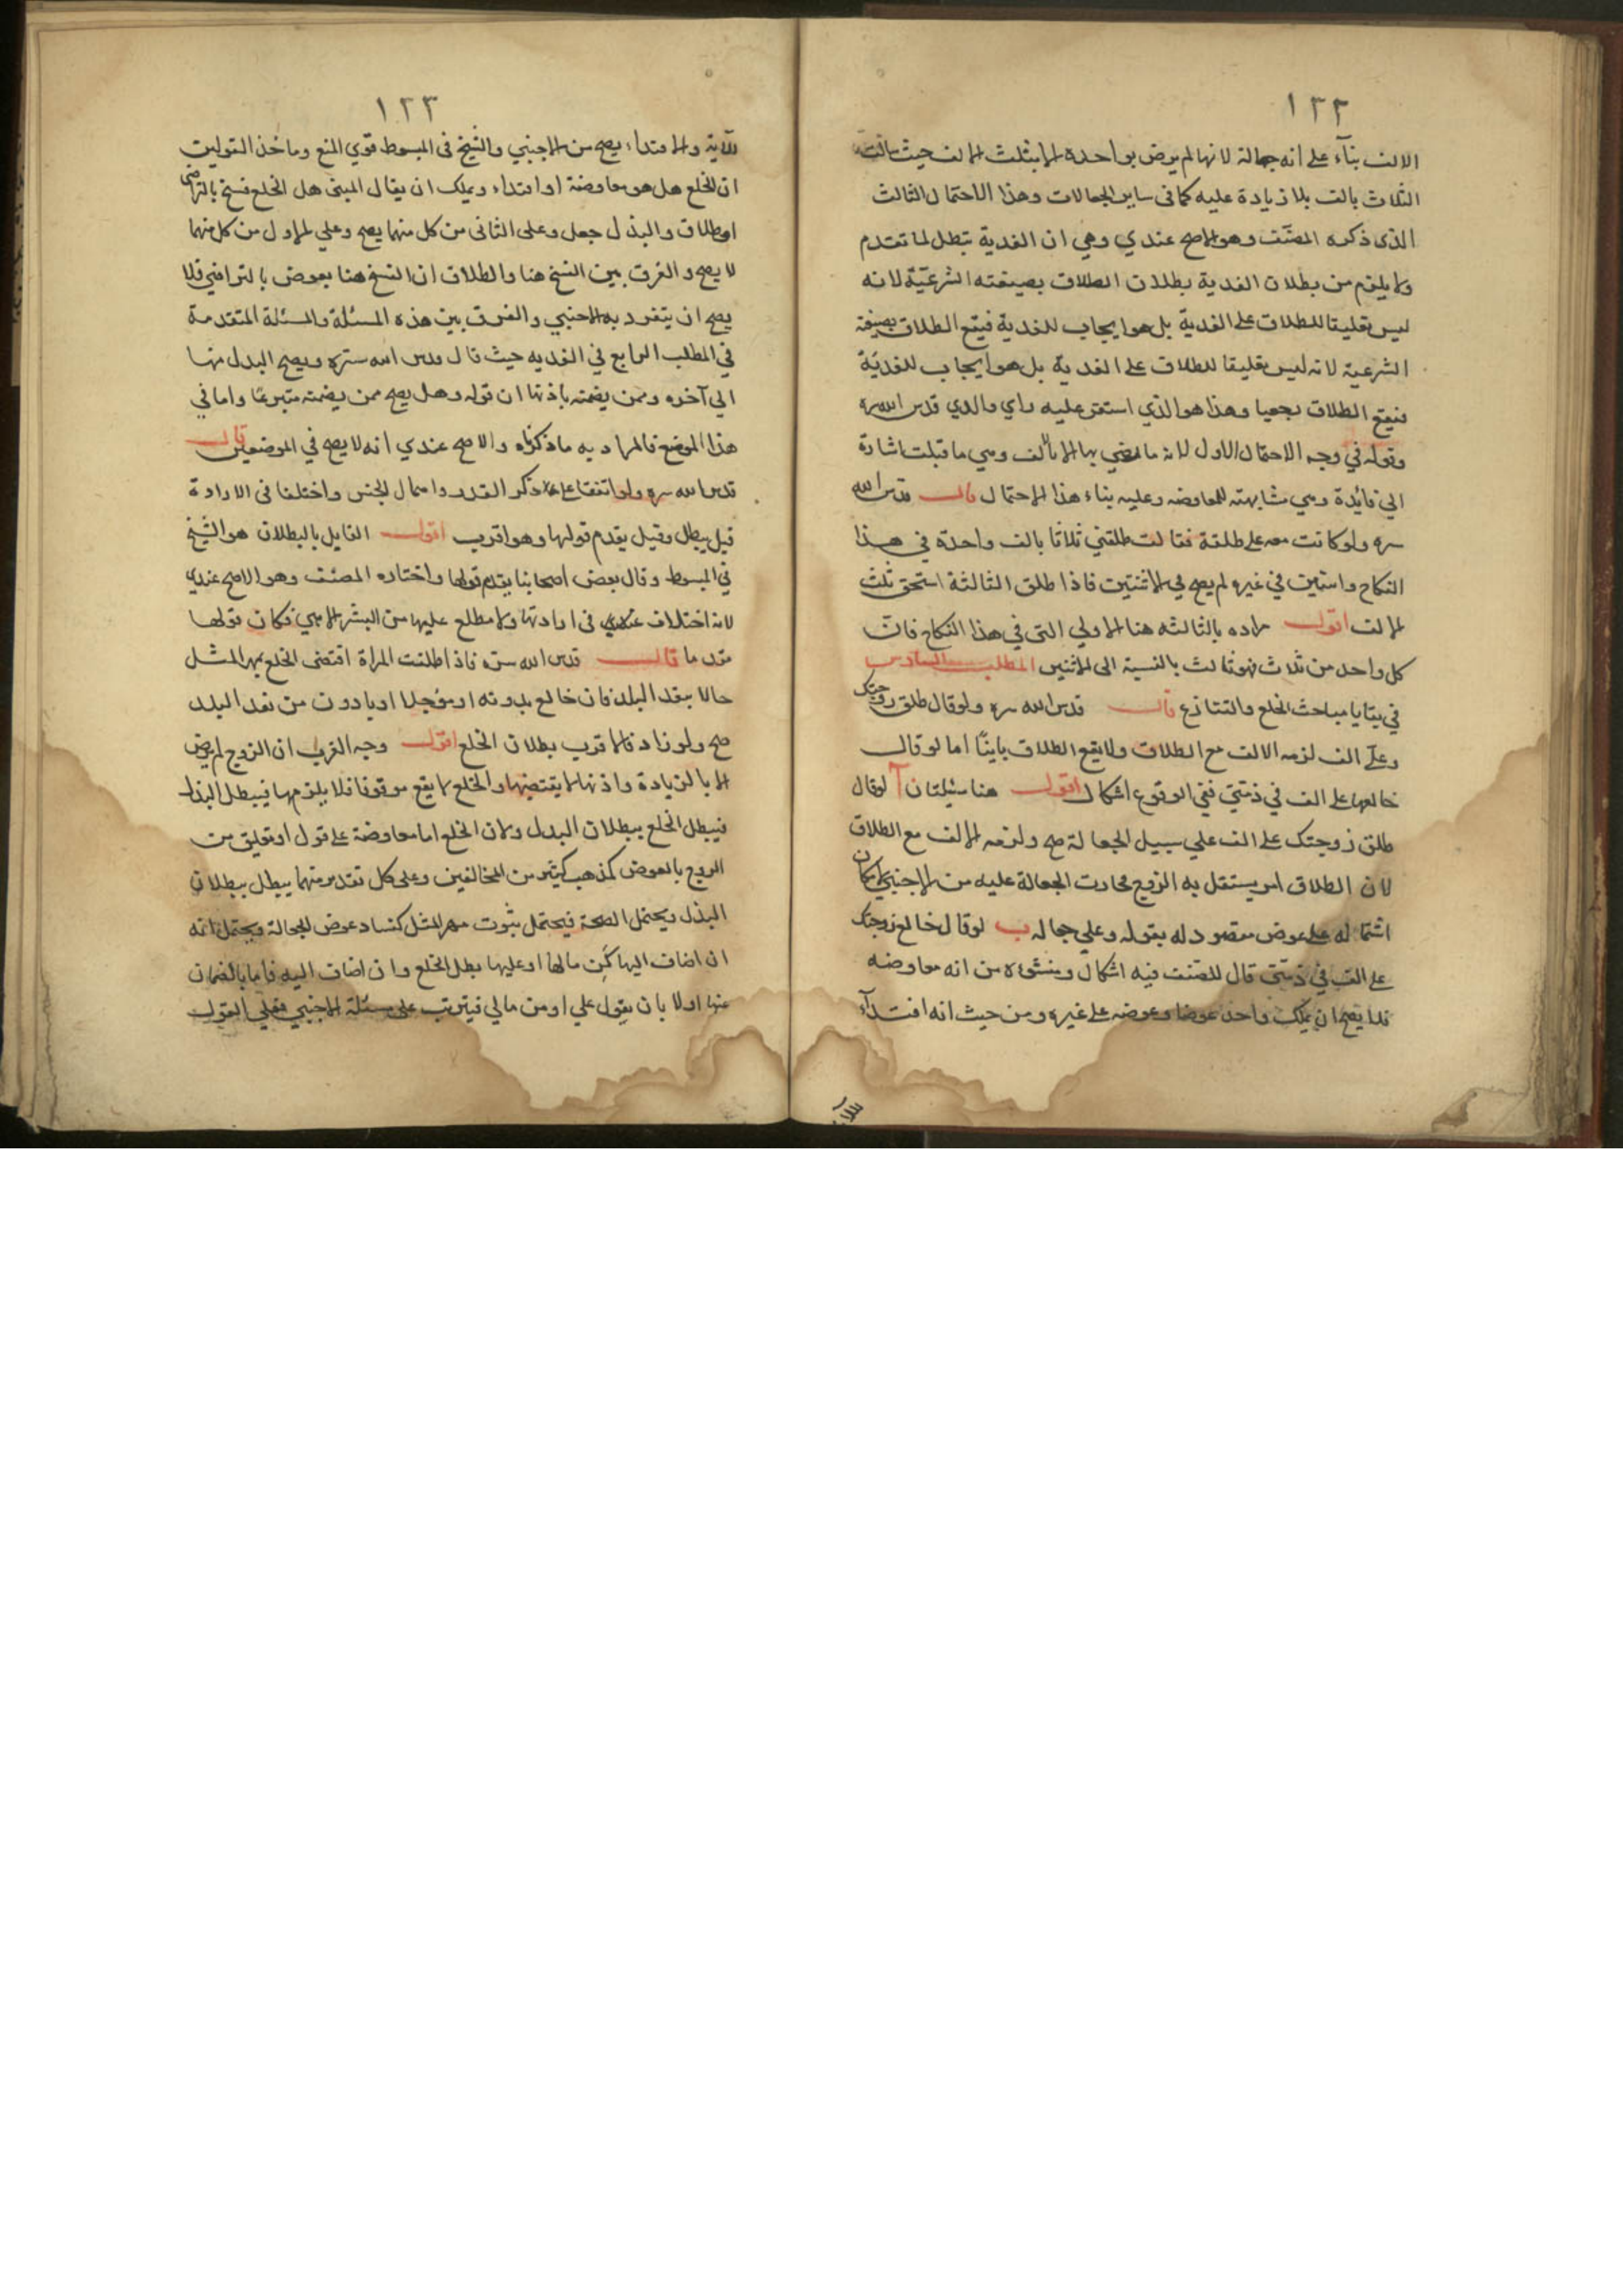 ١٢٢
الالف بناء على انه جعالة لانها لم يرض بواحدة الا بثلث الالف حيث سالت
الثلاث بالف بلا زيادة عليه كما فى ساير الجعالات وهذا الاحتمال الثالث
الذى ذكره المصنف وهو الاصح عندي وهى ان الفدية تبطل لما تقدم
ولا يلزم من بطلان الفدية بطلان الطلاق بصيغته الشرعيّة لانه
ليس تعليقا للطلاق على الفدية بل هو ايجاب للفدية فيقع الطلاق بصيغته
الشرعية لانه ليس تعليقا للطلاق على الفدية بل هو ايجاب للفديّة
فيقع الطلاق رجعيا وهذا هو الذي استقر عليه راي والدي قدس الله سره
وقوله في وجه الاحتمال الاول لانه ما رضي بها الا بالف وهي ما قبلت اشارة
الى فائدة وهي مشابهته للمعاوضه وعليه بناء هذا الاحتمال قال قدس الله
سره ولو كانت معه على طلقة فقالت طلقني ثلاثا بالف واحدة في هذا
النكاح واثنتين في غيره لم يصح في الاثنتين فاذا طلق الثالثة استحق ثلث
الالف اقول مراده بالثالثه هنا الاولي التى في هذا النكاح فان
كل واحد من ثلاث فهو ثالث بالنسبة الى الاثنين المطلب السادس
في بقايا مباحث الخلع والتنازع قال قدس الله سره ولو قال طلق زوجتك
وعلّي الف لزمه الالف مع الطلاق ولا يقع الطلاق باينًا اما لو قال
خالعها على الف في ذمتي ففي الوقوع اشكال اقول هنا مسئلتان آ لو قال
طلق زوجتك على الف علي سبيل الجعالة صح ولزمه الالف مع الطلاق
لان الطلاق امر يستقل به الزوج فجازت الجعالة عليه من الاجنبي لامكان
اشتماله على عوض مقصود له بقوله وعلي جعاله ب لو قال خالع زوجتك
على الف في ذمتى قال المصنف فيه اشكال ومنشؤه من انه معاوضه
فلا يصح ان يملك واحد عوضا وعوضه على غيره ومن حيث انه افتدآء
١٢٣
للآية والافتداء يصح من الاجنبي والشيخ فى المبسوط قوي المنع وماخذ القولين
ان الخلع هل هو معاوضة او افتداء ويمكن ان يقال المبنى هل الخلع فسخ بالتراضي
او طلاق والبذل جعل وعلى الثانى من كل منهما يصح وعلي الاول من كل منهما
لا يصح والفرق بين الفسخ هنا والطلاق ان الفسخ هنا بعوض بالتراضي فلا
يصح ان يتفرد به الاجنبي والفرق بين هذه المسئلة والمسئلة المتقدمة
في المطلب الرابع في الفديه حيث قال قدس الله سّره ويصح البذل منها
الى آخره وممن يضمنه باذنها ان قوله وهل يصح ممن يضمنه متبرعًا واما في
هذا الموضع فالمراد به ما ذكرناه والاصح عندي انه لا يصح في الموضعين قال
قدس الله سره ولو اتفقا على ذكر القدر واهمال الجنس واختلفا فى الارادة
قيل يبطل وقيل يقدم قولها وهو اقرب اقول القايل بالبطلان هو الشيخ
في المبسوط وقال بعض اصحابنا يقدم قولها واختاره المصنف وهو الاصح عندي
لانه اختلاف فى ارادتها ولا مطلع عليها من البشر الا هي فكان قولها
مقدما قال قدس الله سره فاذا اطلقت المراة اقتضى الخلع بمهر المثل
حالا بنقد البلد فان خالع بدونه او مؤجلا او بادون من نقد البلد
صح ولو زاد فالاقرب بطلان الخلع اقول وجه القرب ان الزوج لم يرض
الا بالزيادة واذنها لا يقتضيها والخلع لا يقع موقوفا فلا يلزمها فيبطل البذل
فيبطل الخلع ببطلان البدل ولان الخلع اما معاوضة على قول او تعليق من
الزوج بالعوض كمذهب كثير من المخالفين وعلى كل تقدير منهما يبطل ببطلان
البذل ويحتمل الصحة فيحتمل ثبوت مهر المثل كفساد عوض الجعالة ويحتمل انه
ان اضاف اليها كمن مالها او عليها بطل الخلع وان اضاف اليه فاما بالضمان
عنها اولا بان يقول علي او من مالي فيترتب على مسئلة الاجنبي فعلي القول